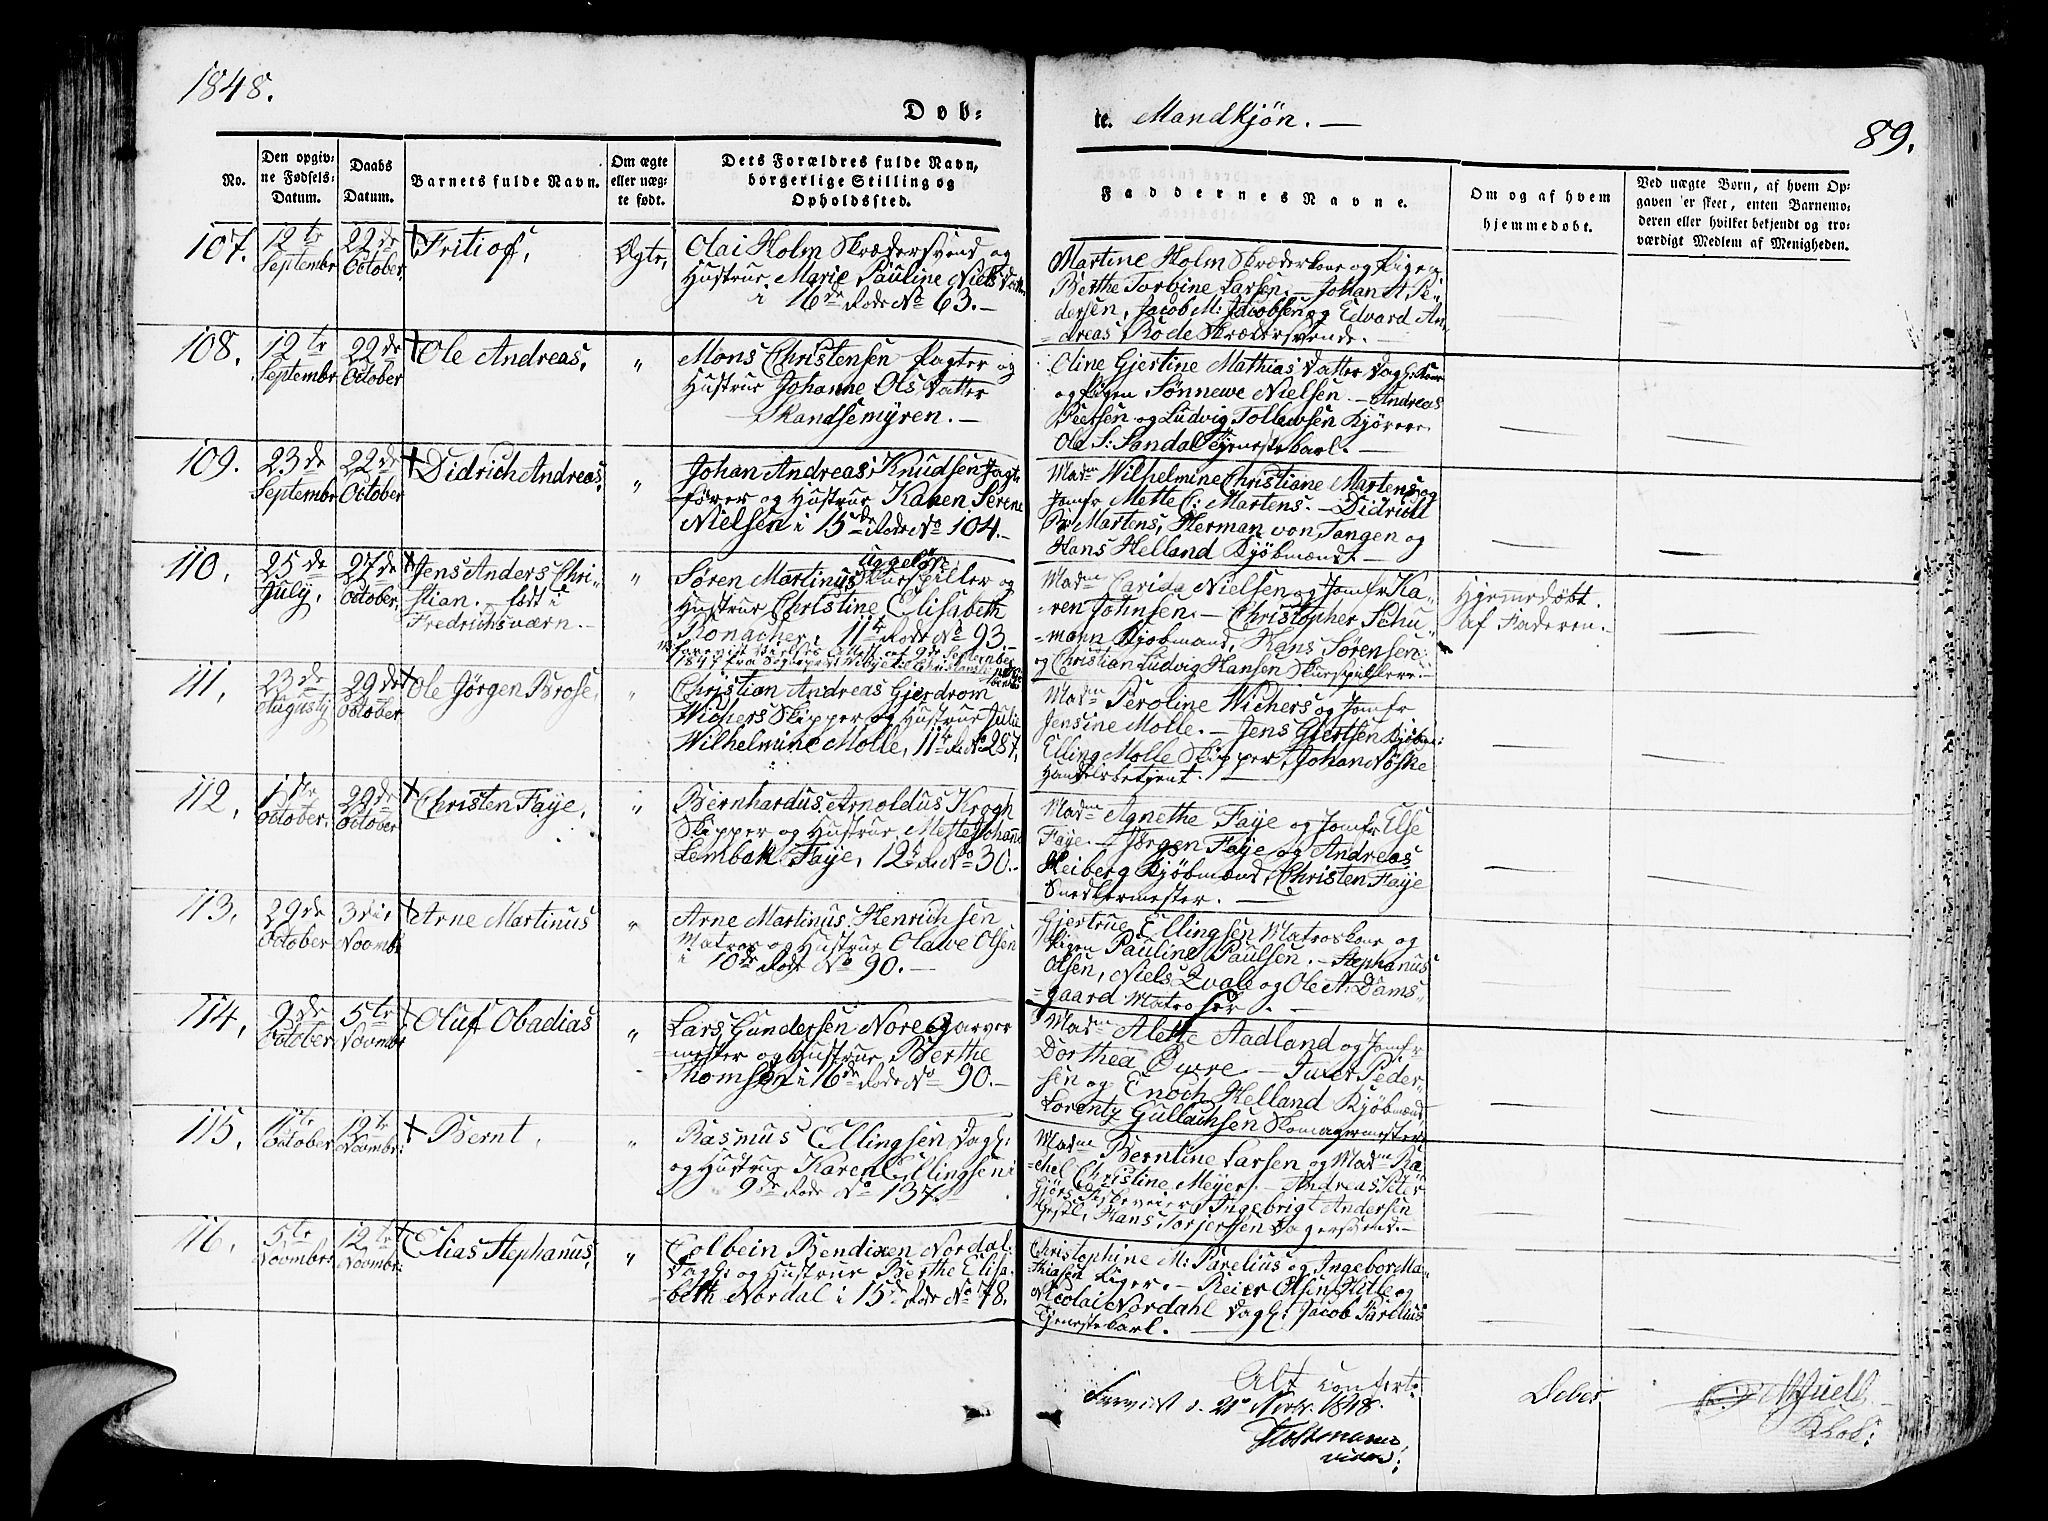 1848.
Døb-
te. Mandkjøn. —
89.
No.
Den opgiv-
ne Fødsels-
Datum.
Daabs
Datum.
Barnets fulde Navn.
Om ægte
eller uæg-
te født.
Dets Forældres fulde Navn,
borgerlige Stilling og
Opholdssted.
Faddernes Navne.
Om og af hvem
hjemmedøbt.
Ved uægte Børn, af hvem Op-
gaven er skeet, enten Barnemo-
deren eller hvilket bekjendt og tro-
værdigt Medlem af Menigheden.
107.
12te
Septembr
22de
October,
Fritiof,
Ægte,
Olai Holm Skrædersvend og
Hustrue Marie Pauline Niels Datter
i 16de Rode No 63. —
Martine Holm Skræderkone og Pigen
Berthe Torbine Larsen. — Johan A Pe-
dersen, Jacob M: Jacobsen og Edvard An-
dreas Rode Skrædersvende. —
108.
12te
Septembr
22de
October
Ole Andreas,
"
Mons Christensen Fogter og
Hustrue Johanne Ols Datter
— Skandsemyren. —
Oline Gjertine Mathias Datter Dagl: Kone
og Pigen Sønnewe Nielsen. — Andreas
Peersen og Ludvig Tollewsen Kjørere
Ole S: Sandal Tjenestekarl. —
109.
23de
Septembr
22de
October
Didrich Andreas,
"
Johan Andreas Knudsen Jagt-
fører og Hustrue Karen Serene
Nielsen i 15de Rode No 104. —
Madm Wilhelmine Christiane Martens og
Jomfr Mette C: Martens. — Didrich
Martens, Herman von Tangen og
Hans Helland Kjøbmænd —
110.
25de
July,
27de
October,
Jens Anders Chri-
stian. — født i
Fredrichsværn. —
"
Søren Martinus Aggeløse, Skuespiller og
Hustrue Christine Elisabeth
Ronacher, 11te Rode No 93. —
foreviist Vielses Attest af 9de September
1847 fra Sognepræst
Madm Carida Nielsen og Jomfr Ka-
ren Johnsen. — Christopher Schu-
mann Kjøbmand, Hans Sørensen
og Christian Ludvig Hansen Skuespillere. —
Hjemmedøbt
af Faderen. —
111.
23de
Augusty
29de
October
Ole Jørgen Brose,
"
Christian Andreas Gjerdrom
Wichers Skipper og Hustrue Julie
Wilhelmine Molle, 11te R No 287,
Madm Peroline Wichers og Jomfr
Jensine Molle. — Jens Giertsen Kjøbm:
Elling Molle Skipper, Johan Noske
Handelsbetjent. —
112.
1ste
October,
29de
October
Christen Faye,
"
Bernhardus Arnoldus Krogh
Skipper og Hustrue Mette Johanne
Lembak Faye, 12te R No 30. —
Madm Agnethe Faye og Jomfr Else
Faye. — Jørgen Faye og Andreas
Heiberg Kjøbmænd, Christen Faye
Snedkermester. —
113.
29de
October
3die
Novmbr
Arne Martinus
"
Arne Martinus Henrichsen
Matros og Hustrue Olawe Olsen
i 10de Rode No 90. —
Gjertrue Ellingsen Matroskone og
Pigen Pauline Paulsen. — Stephanus
Olsen, Niels Qvale og Ole A. Dams-
gaard Matroser. —
114,
9de
October
5te
Novmbr
Oluf Obadias
"
Lars Gundersen Nore Garver
mester og Hustrue Berthe
Thomsen i 16de Rode No 90. —
Madm Alette Aadland og Jomfr
Dorthea Owre. — Iver Peder-
sen og Enoch Helland Kjøbmænd,
Lorentz Gullachsen Skomagermester
115,
11te
October
12te
Novmbr:
Bernt,
"
Rasmus Ellingsen Dagl:
og Hustrue Karen Ellingsen i
9de Rode No 137.
Madm Berntine Larsen og Madm Ra-
chel Christine Meyer. — Andreas Peter
Ingebrigt Andersen
Hans Torjersen Bagersvend. —
116.
5te
Novmbr:
12te
Novmbr:
Elias Stephanus,
"
Colbein Bendixen Nordal
Dagl: og Hustrue Berthe Elisa-
beth Nordal i 15de Rode No 78.
Christophine M: Parelius og Ingebor Ma-
thiasen Piger. — Reier Olsen Hitle og
Nicolai Nordahl Dagl: Jacob Parelius
Tjenestekarl. —
Alt confert:
1848.